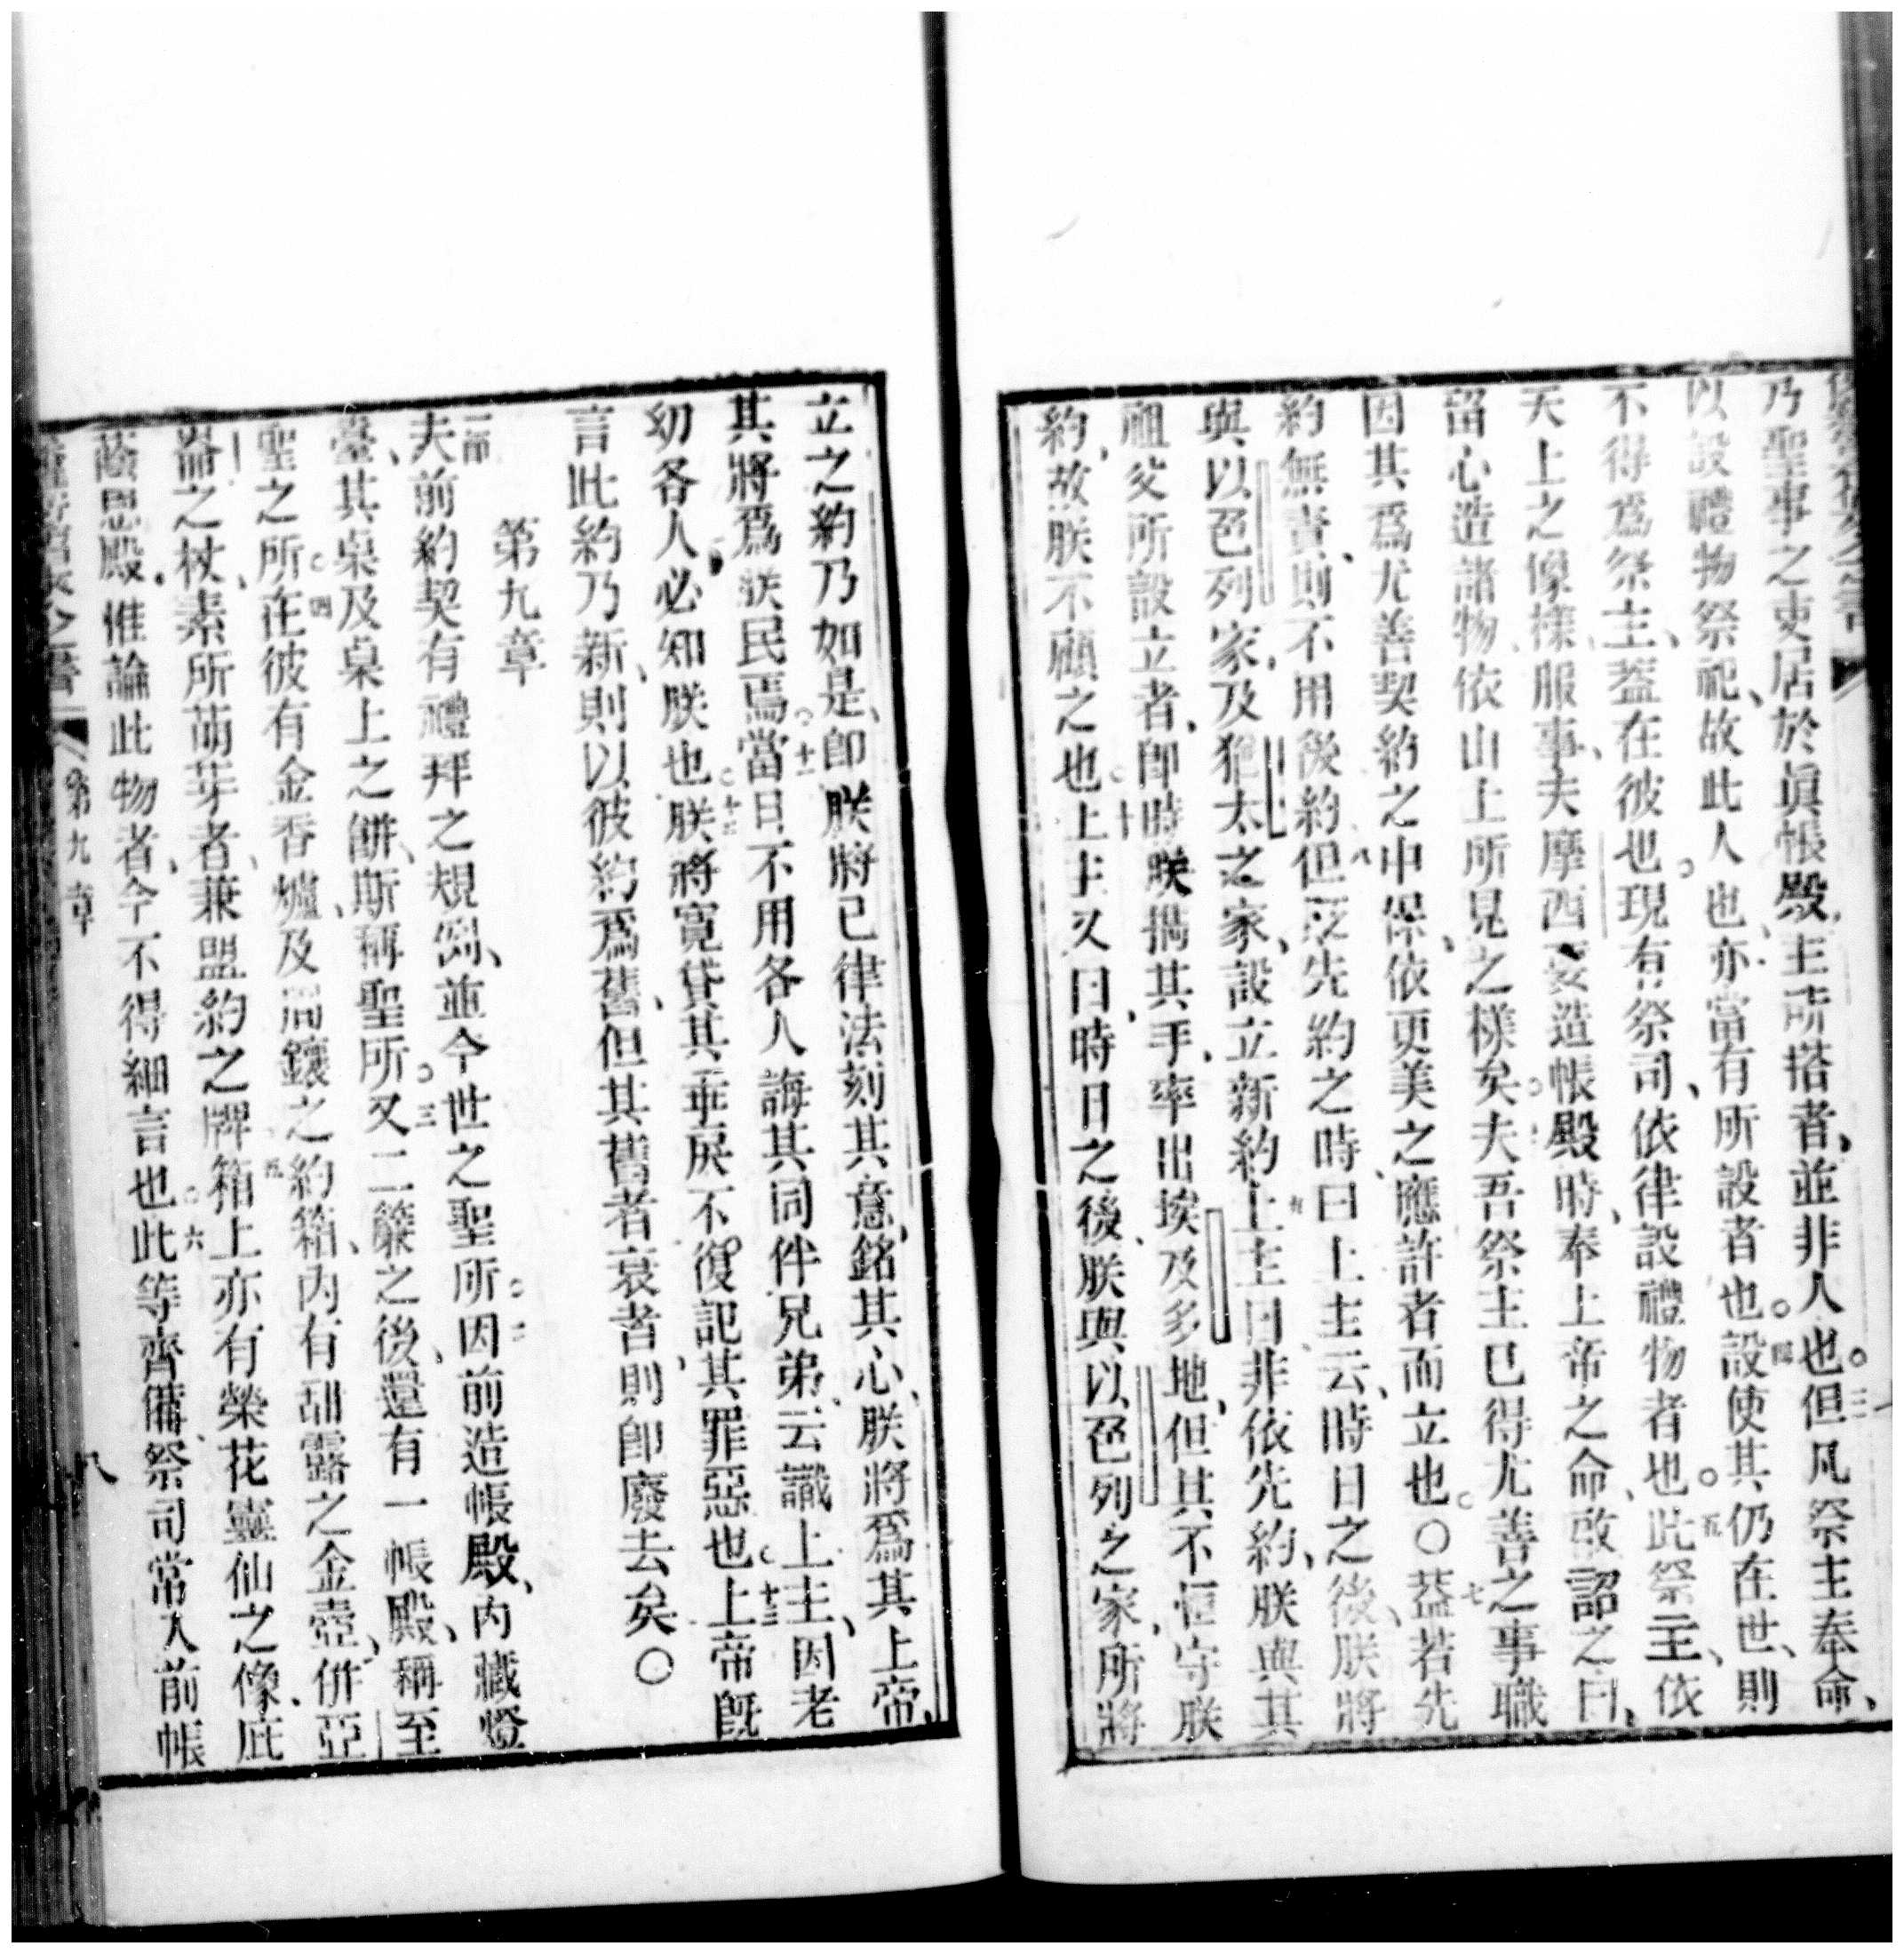 乃聖事之吏居於眞帳殿主所搭者並非人也○三但凡祭主奉命
以設禮物祭祀故此人也亦當有所設者也○四設使其仍在世則
不得爲祭主葢在彼也○現有祭司依律設禮物者也○五此祭主依
天上之像樣服事夫摩西要造帳殿時奉上帝之命啟詔之曰
留心造諸物依山上所見之樣矣○夫吾祭主已得尤善之事職
因其爲尤善契約之中保依更美之應許者而立也○○七葢若先
約無責則不用後約但八泛先約之時曰上主云時日之後朕將
與以色列家及猶太之家設立新約九上主曰非依先約朕與其
祖父所設立者卽時朕攜其手率出埃及多地但其不恒守朕
約故朕不顧之也○十上主又曰時日之後朕與以色列之家所將
立之約乃如是卽朕將己律法刻其意銘其心朕將爲其上帝
其將爲朕民焉○十一當日不用各人誨其同伴兄弟云識上主因老
幼各人必知朕也○十二朕將寬貸其乖戾不復記其罪惡也○十三上帝旣
言此約乃新則以彼約爲舊但其舊者衰者則卽廢去矣○
第九章
一節夫前約契有禮拜之規例並今世之聖所○二因前造帳殿內藏燈
臺其桌及桌上之餅斯稱聖所○三又二簾之後還有一帳殿稱至
聖之所○四在彼有金香爐及周鑲之約箱內有甜露之金壺併亞
崙之杖素所萌芽者兼盟約之牌五箱上亦有榮花靈仙之像庇
蔭恩殿惟論此物者今不得細言也○六此等齊備祭司常入前帳
第九章
八